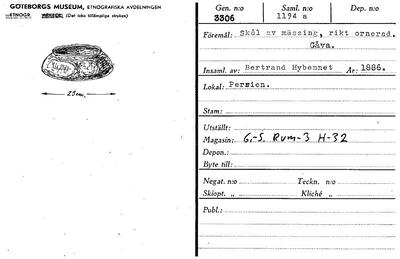 GÖTEBORGS MUSEUM, ETNOGRAFISKA AVDELNINGEN
(Det icke tillämpliga strykes)
25 cm.
Gen. n:o
Saml. n:o
Dep. n:o
3306
1194 a
Föremål: Skål av mässing, rikt ornerad.
Gåva.
Insaml. av: Bertrand Hybennet År: 1886.
Lokal: Persien.
Stam:
Utställt:
Magasin: G.-S. Rum-3 H-32
Depon.:
Byte till:
Negat. n:o
Teckn. n:o
Skiopt. „
Kliché „
Publ.: